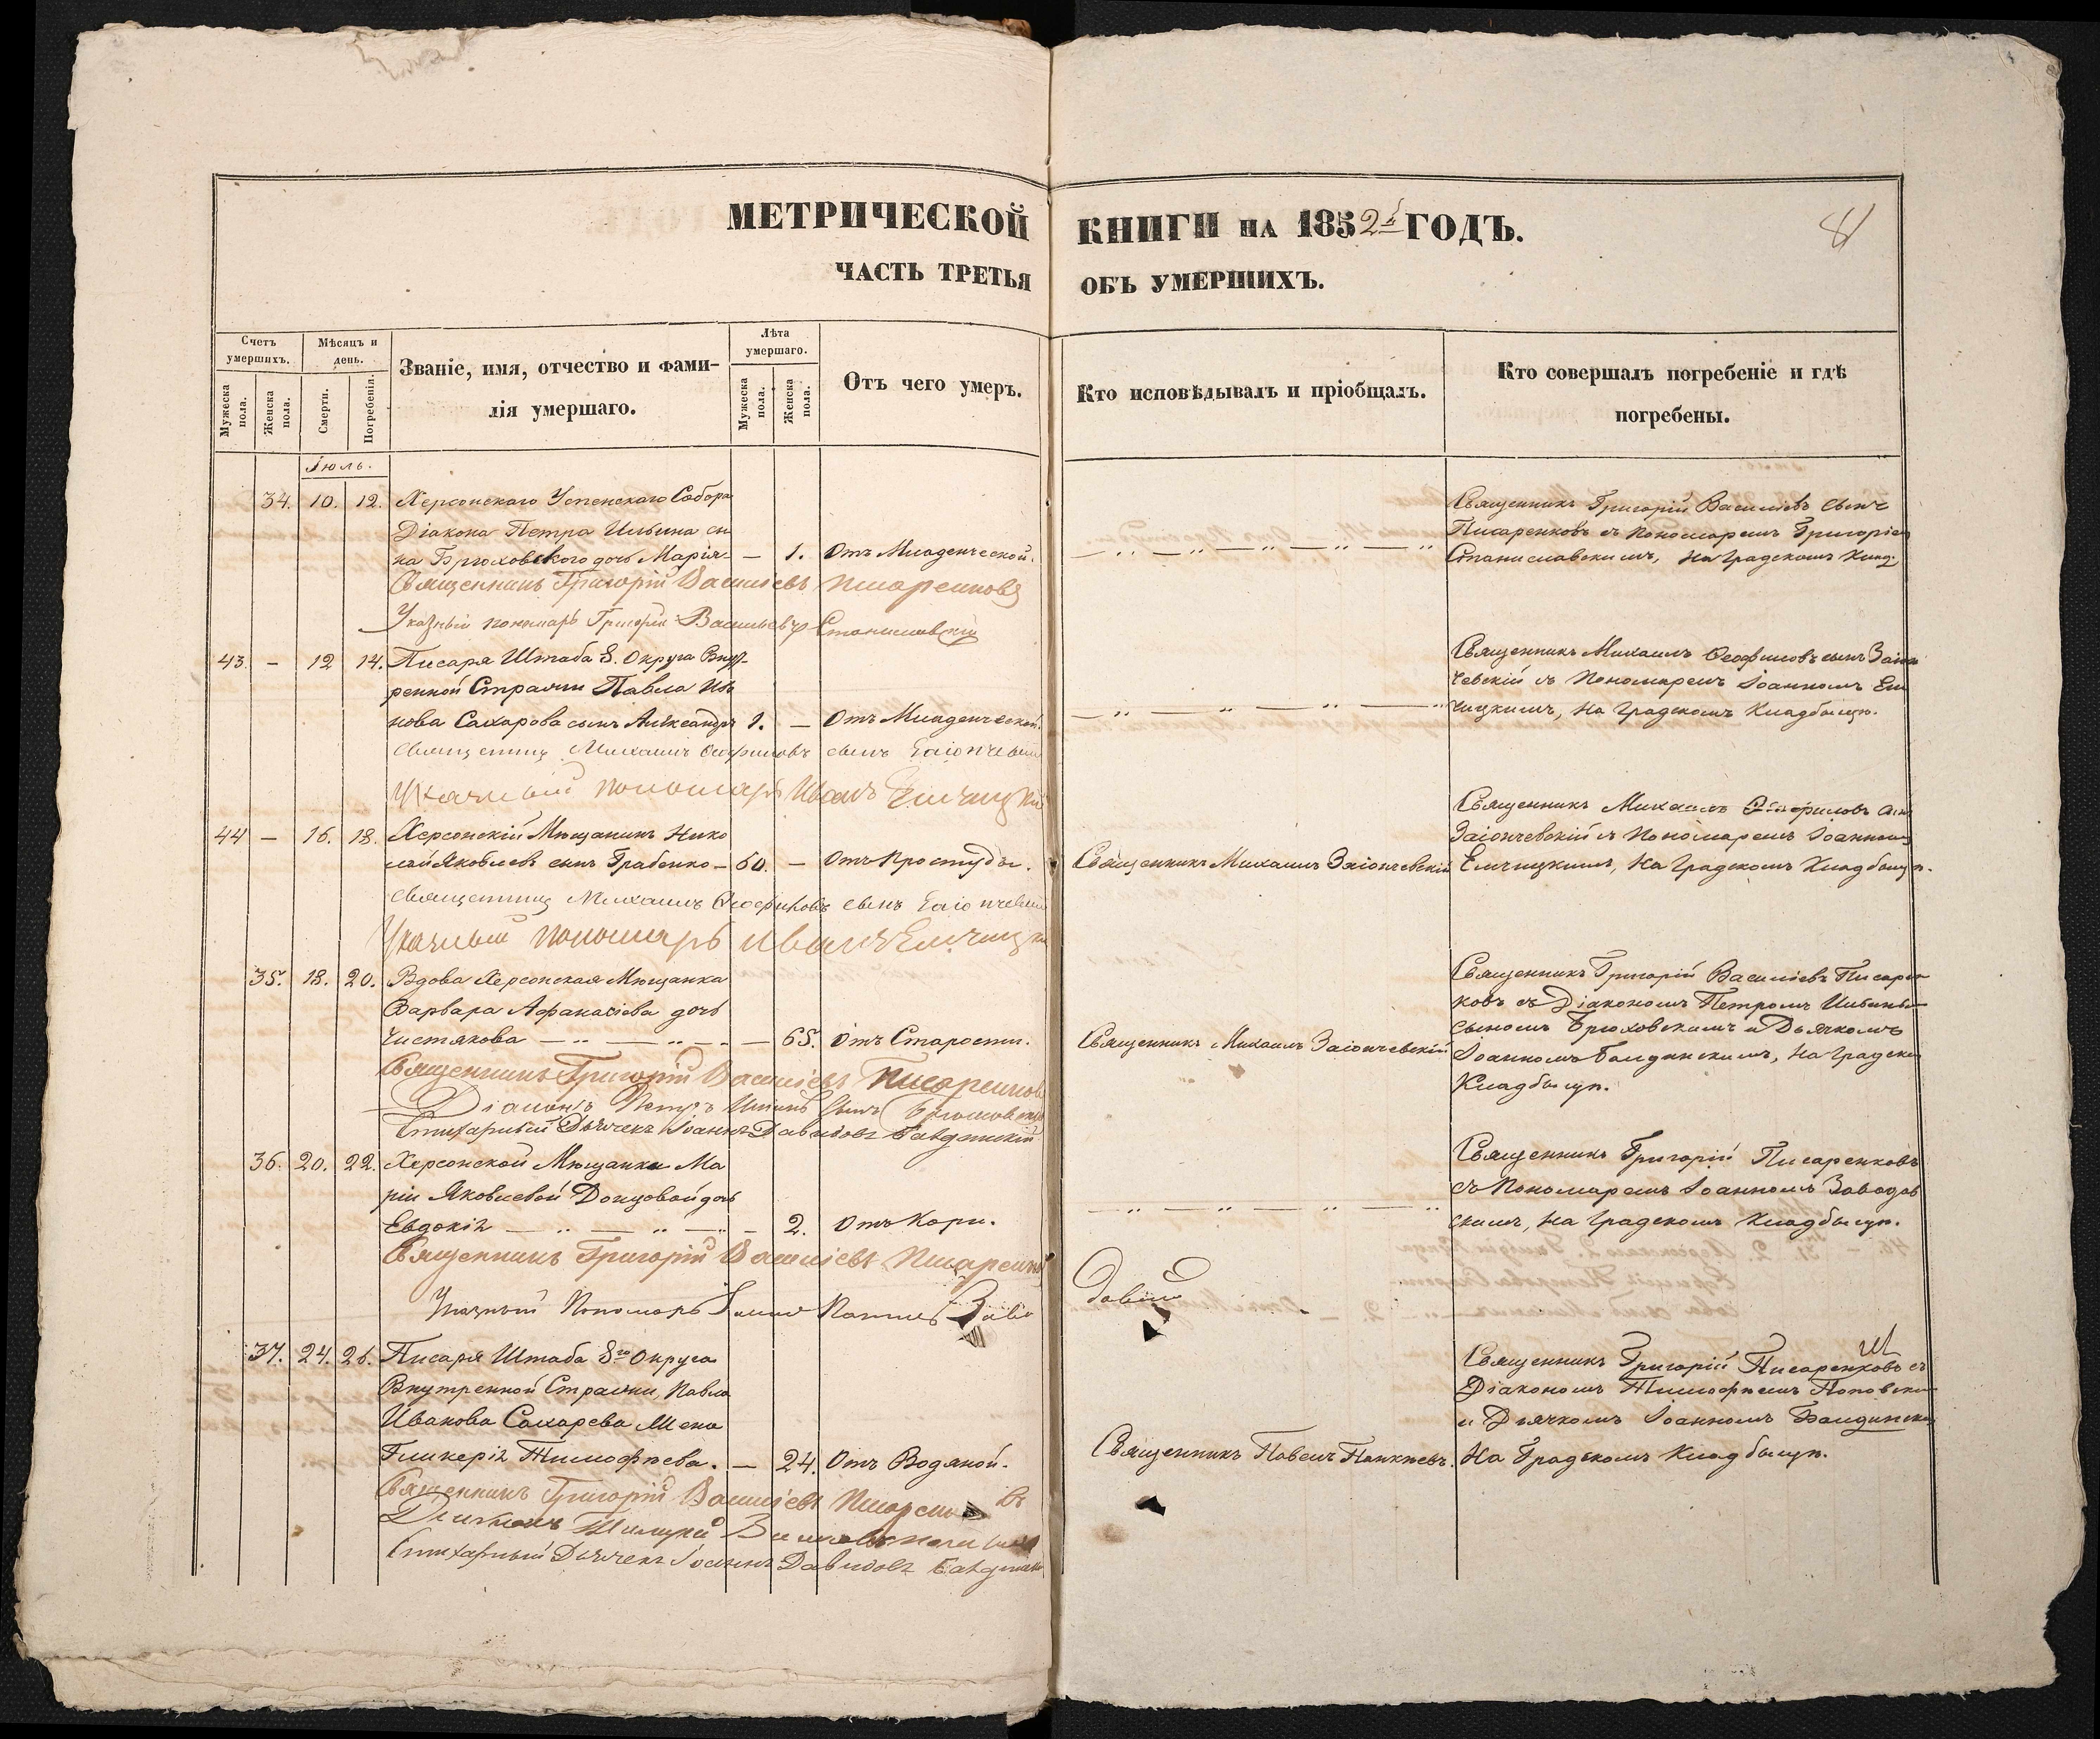 МЕТРИЧЕСКОЙ КНИГИ НА 1852й ГОДЪ.
81
ЧАСТЬ ТРЕТЬЯ ОБЪ УМЕРШИХЪ.
Счетъ умершихъ.
Мужеска пола.
Женска пола.
Мѣсяцъ и день.
Смерти.
Погребенія.
Званіе, имя, отчество и фами-
лія умершаго.
Лѣта умершаго.
Мужеска пола.
Женска пола.
Отъ чего умеръ.
Кто исповѣдывалъ и пріобщалъ.
Кто совершалъ погребеніе и гдѣ
погребены.
Іюль.
34. 10. 12. Херсонскаго Успенскаго Собора
Діакона Петра Ильина сы
на Брюховского дочь Марія — 1. Отъ Младенческой.
Священникъ Григорій Василіевъ сынъ
Писаренковъ съ Пономаремъ Григоріем
Станиславскимъ, на Градскомъ Клад.
Священникъ Григорій Василіевъ Писаренковъ
Указный пономарь Григорій Васильевъ Станиславскій
43. — 12 14. Писаря Штаба 8. Округа Внут-
ренной Стражи Павла Ива
нова Сахарова сынъ Александръ 1. — Отъ Младенческой.
Священникъ Михаилъ Ѳеофиловъ сынъ Заіон
чевскій съ Пономаремъ Іоанномъ Ел
чицкимъ, на Градскомъ Кладбищѣ.
Священникъ Михаилъ Ѳеофиловъ сынъ Заіончевскій
Указный пономарь Иванъ Елчицкій
44 — 16. 18. Херсонскій Мѣщанинъ Нико
лай Яковлевъ сынъ Грабенко — 60. — Отъ Простуды.
Священникъ Михаилъ Заіончевскій
Священникъ Михаилъ Ѳеофиловъ сын
Заіончевскій съ Пономаремъ Іоанном
Елчицкимъ, на Градскомъ Кладбищѣ.
Священникъ Михаилъ Ѳеофиловъ сынъ Заіончевскій
Указный пономарь Иванъ Елчицкій
35. 18. 20. Вдова Херсонская Мѣщанка
Варвара Афанасіева дочь
Чистякова — 65. Отъ Старости.
Священникъ Михаилъ Заіончевскій
Священникъ Григорій Василіевъ Писарен
ковъ съ Діакономъ Петромъ Ильинымъ
сыномъ Брюховскимъ и Дьячкомъ
Іоанномъ Балдинскимъ, на Градском
Кладбищѣ.
Священникъ Григорій Василіевъ Писаренковъ
Діаконъ Петръ Ильинъ сынъ Брюховскій
Стихарный Дьячекъ Іоаннъ Давидовъ Балдинскій
36. 20. 22. Херсонской Мѣщанки Ма
ріи Яковлевой Донцовой дочь
Евдокія — 2. Отъ Кори.
Священникъ Григорій Писаренковъ
съ Пономаремъ Іоанномъ Заводов
скимъ, на Градскомъ Кладбищѣ.
Священникъ Григорій Василіевъ Писаренковъ
Указный Пономарь
37. 24. 26. Писаря Штаба 8го Округа
Внутренной Стражи, Павла
Иванова Сахарева Жена
Гликерія Тимофѣева. — 24. Отъ Водяной.
Священникъ Павелъ Панкѣевъ.
Священникъ Григорій Писаренковъ съ
Діакономъ Тимофѣемъ Поповским
и Дьячкомъ Іоанномъ Балдински
На Градскомъ Кладбищѣ.
Священникъ Григорій Василіевъ Писаренковъ
Стихарный Дьячекъ Іоаннъ Давидовъ Балдински